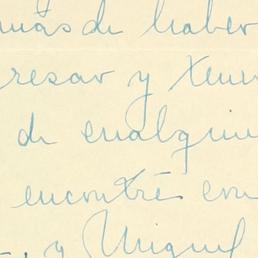 más de haber
resar y
de cualquier
encontré con
y Miguel